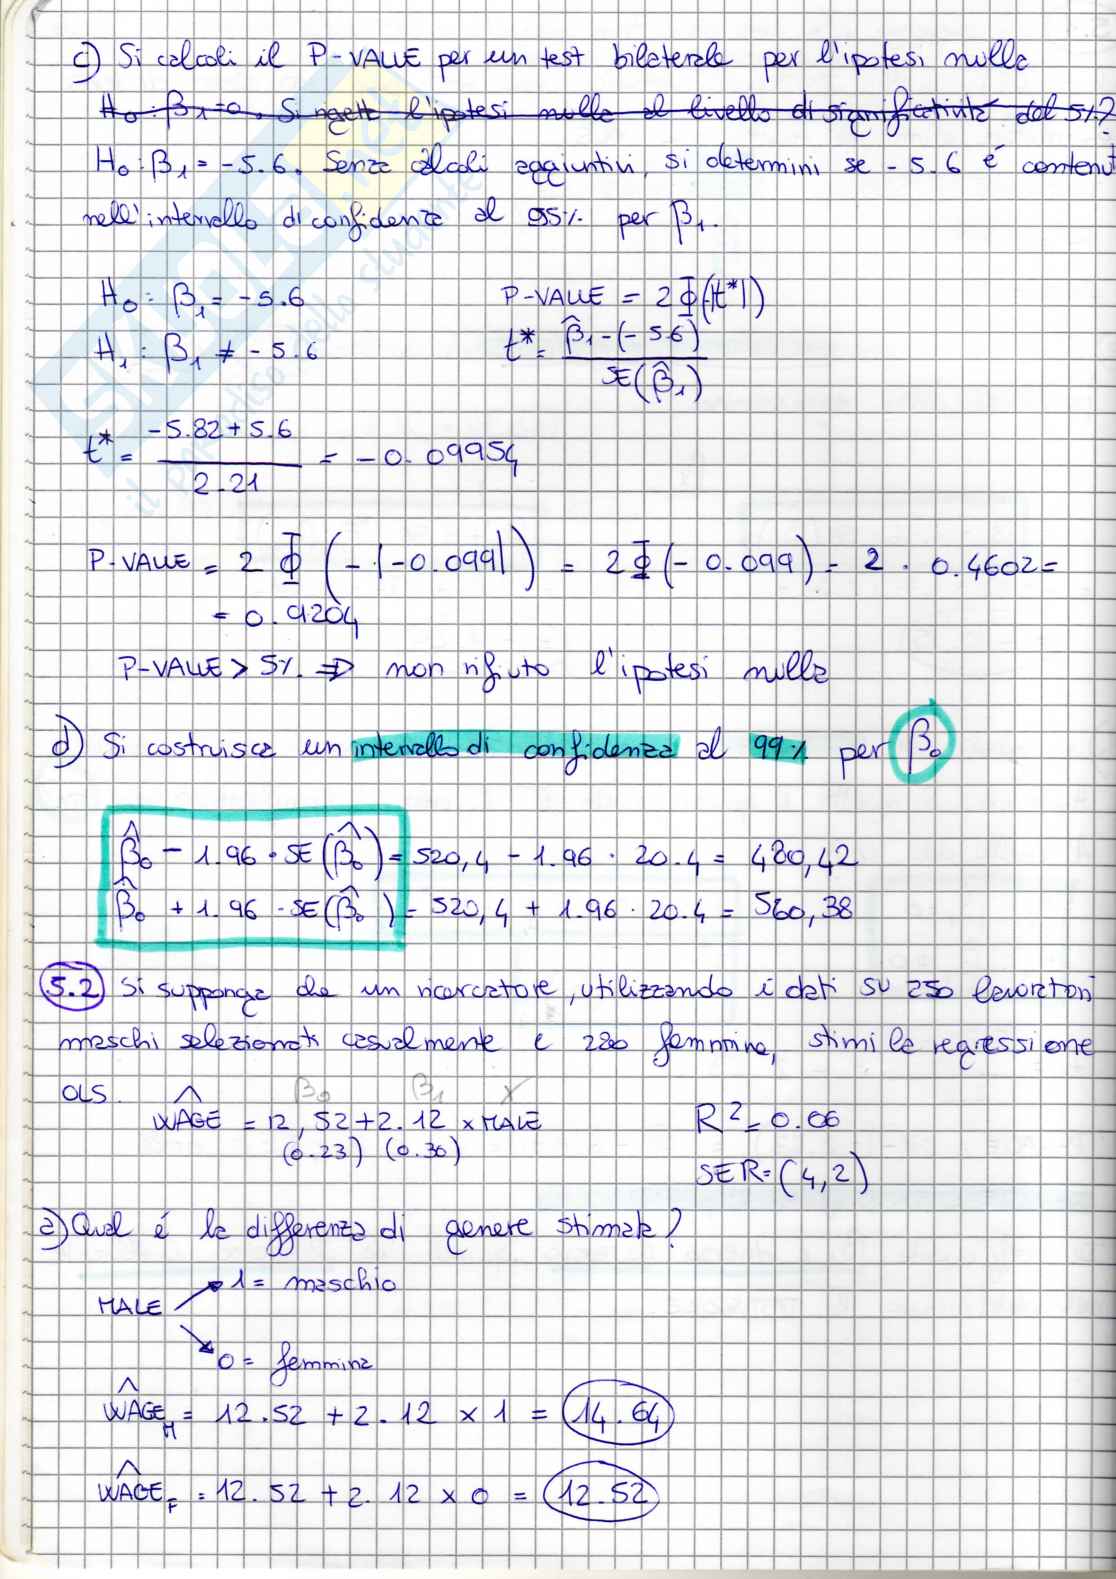 c) Si calcoli il P-VALUE per un test bilaterale per l'ipotesi nulla
H0: β1=0. Si rigetti l'ipotesi nulla al livello di significatività del 5%?
H0: β1 = -5.6. Senza calcoli aggiuntivi, si determini se -5.6 é contenut
nell'intervallo di confidenza al 95% per β1.
H0: β1 = -5.6
P-VALUE = 2Φ(-|t*|)
H1: β1 ≠ -5.6
t* = β̂1-(-5.6) / SE(β̂1)
t* = -5.82+5.6 / 2.21 = -0.09954
P-VALUE = 2 Φ (-|-0.099|) = 2Φ(-0.099) = 2 · 0.4602 =
= 0.9204
P-VALUE > 5% ⇒ non rifiuto l'ipotesi nulla
d) Si costruisca un intervallo di confidenza al 99% per β0
β̂0 - 1.96 · SE(β̂0) = 520,4 - 1.96 · 20.4 = 480,42
β̂0 + 1.96 · SE(β̂0) = 520,4 + 1.96 · 20.4 = 560,38
5.2 Si supponga che un ricercatore, utilizzando i dati su 250 lavoratori
maschi selezionati casualmente e 280 femmine, stimi la regressione
OLS.
β0 β1 X
WAGE^ = 12,52+2.12 x MALE
R² = 0.06
(0.23) (0.36)
SER = (4,2)
a) Qual é la differenza di genere stimata?
1 = maschio
MALE
0 = femmina
WAGE^M = 12.52 + 2.12 x 1 = 14.64
WAGE^F = 12.52 + 2.12 x 0 = 12.52
SKUOLA.net
il paradiso dello studente